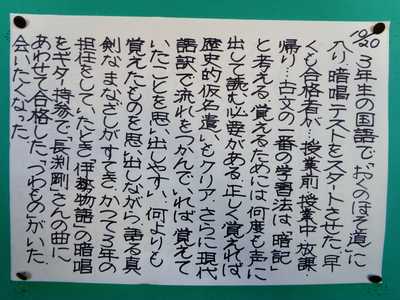 10/20
３年生の国語で「おくのほそ道」に
入り、暗唱テストをスタートさせた。早
くも合格者が…授業前、授業中、放課・
帰り…古文の一番の学習法は、「暗記」
と考える。覚えるためには、何度も声に
出して読む必要がある。正しく覚えれば、
歴史的仮名遣いもクリア。さらに現代
語訳で流れをつかんでいれば、覚えて
いたことを思い出しやすい。何よりも、
覚えたものを思い出しながら語る真
剣なまなざしがすてき。かつて３年の
担任をしていたとき「伊勢物語」の暗唱
をギター持参で、長渕剛さんの曲に
あわせて合格した、「つわもの」がいた。
会いたくなった。